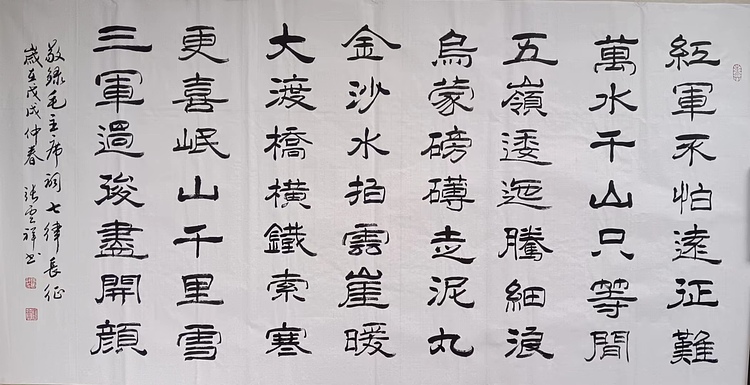 紅軍不怕遠征難
萬水千山只等閒
五嶺逶迤騰細浪
烏蒙磅礴走泥丸
金沙水拍雲崖暖
大渡橋橫鐵索寒
更喜岷山千里雪
三軍過後盡開顏
敬録毛主席詞七律長征
歲在戊戌仲春 張雲祥书